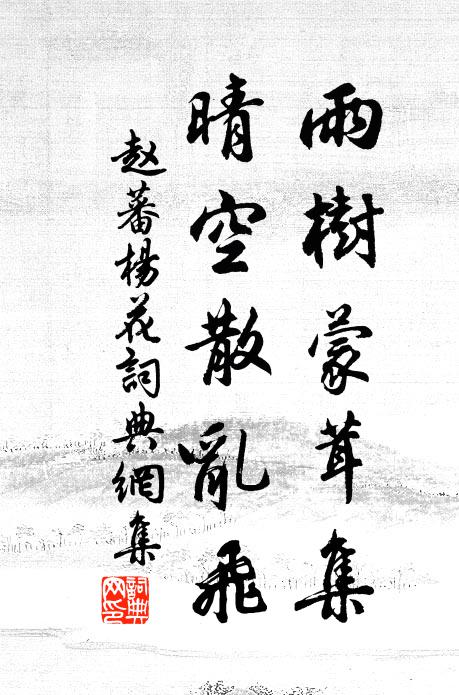 雨樹蒙茸集
晴空散亂飛
赵蕃楊花詞典網集
詞典网印